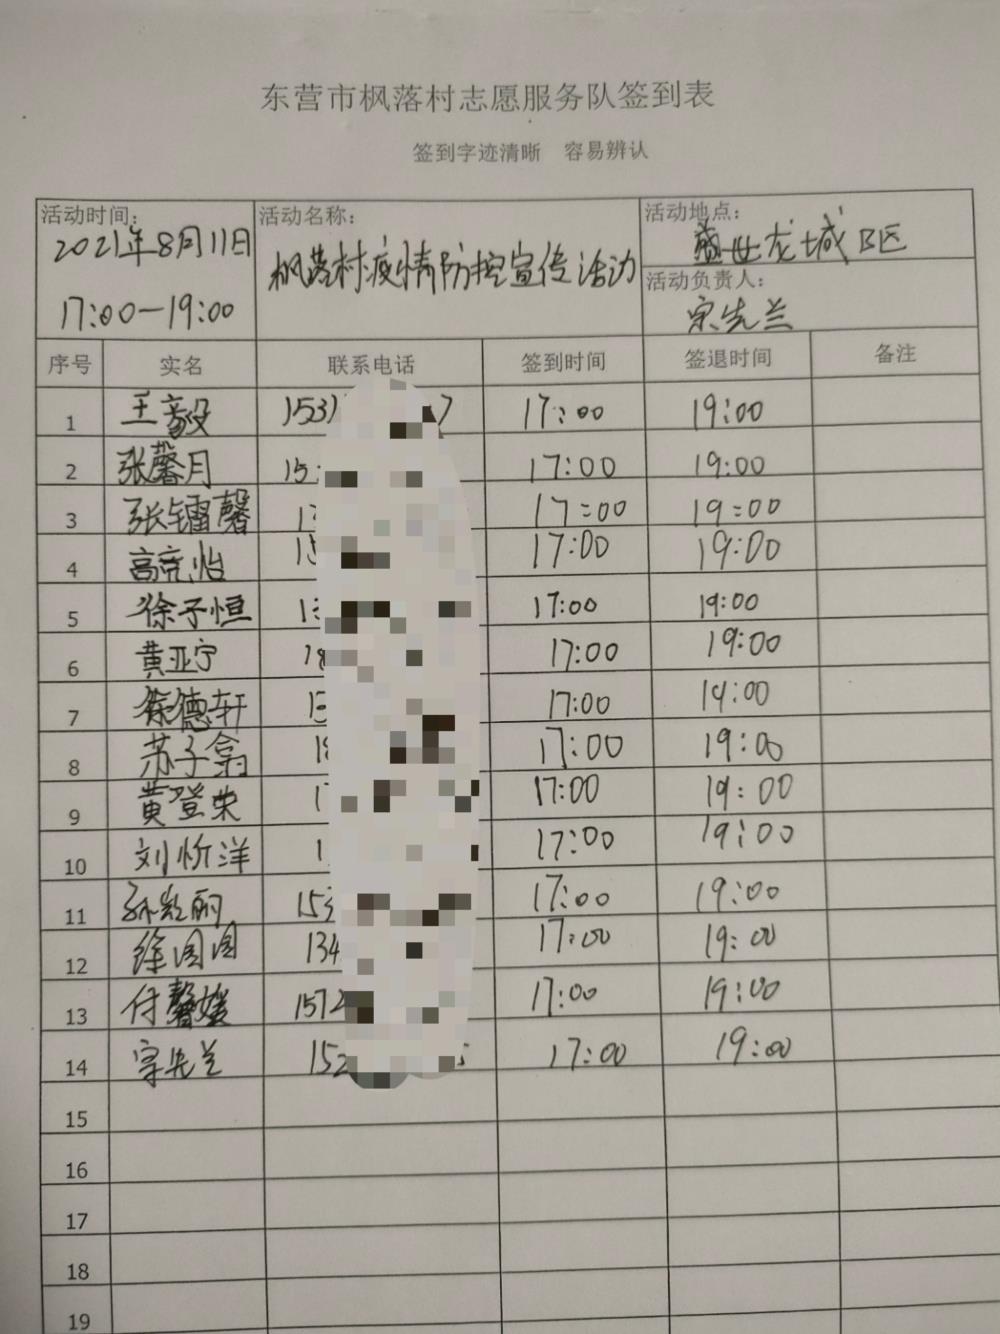 东营市枫落村志愿服务队签到表
签到字迹清晰 容易辨认
活动时间: 2021年8月11日 17:00-19:00
活动名称: 枫落村疫情防控宣传活动
活动地点: 盛世龙城B区
活动负责人: 宗先兰
序号 实名 联系电话 签到时间 签退时间 备注
1 王毅 153 7 17:00 19:00
2 张馨月 15 17:00 19:00
3 张镭馨 1 17:00 19:00
4 高竞怡 15 17:00 19:00
5 徐子恒 13 17:00 19:00
6 黄亚宁 18 17:00 19:00
7 徐德轩 15 17:00 19:00
8 苏子翕 18 17:00 19:00
9 黄登荣 1 17:00 19:00
10 刘忻洋 1 17:00 19:00
11 孙红丽 153 17:00 19:00
12 徐圆圆 134 17:00 19:00
13 付馨媛 1572 17:00 19:00
14 宗先兰 152 5 17:00 19:00
15
16
17
18
19